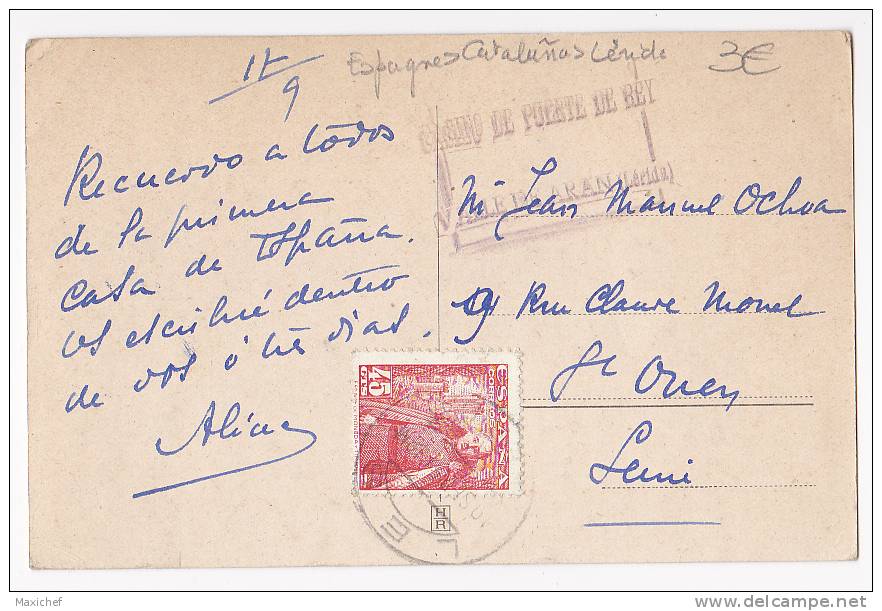 17/9
Espagne > Cataluña > Lérida
3€
CASINO DE PUENTE DE REY
VALLE DE ARAN (Lérida)
Recuerdo a todos
de la primera
casa de España.
os escribiré dentro
de dos ó tres dias.
Aline
Mr Jean Manuel Ochoa
9 Rue Claude Monet
St Ouen
Seine
45
CTS
ESPAÑA
CORREOS
HR
L E
Maxichef
delcampe.net